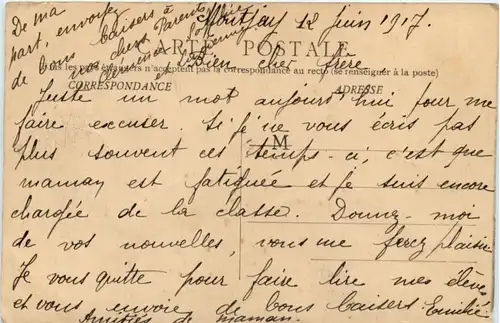 De ma
part, envoyez
de bons baisers à
vos chers Parents,
Clémence
et
Montjay 12 juin 1917.
CARTE POSTALE
Bien cher frère
Tous les pays étrangers n'acceptent pas la correspondance au recto (se renseigner à la poste)
CORRESPONDANCE
ADRESSE
M
Juste un mot aujourd'hui pour me
faire excuser. Si je ne vous écris pas
plus souvent ces temps-ci, c'est que
maman est fatiguée et je suis encore
chargée de la classe. Donnez-moi
de vos nouvelles, vous me ferez plaisir
Je vous quitte pour faire lire mes élèves
et vous envoie de bons baisers Emilie
Amitiés de maman.